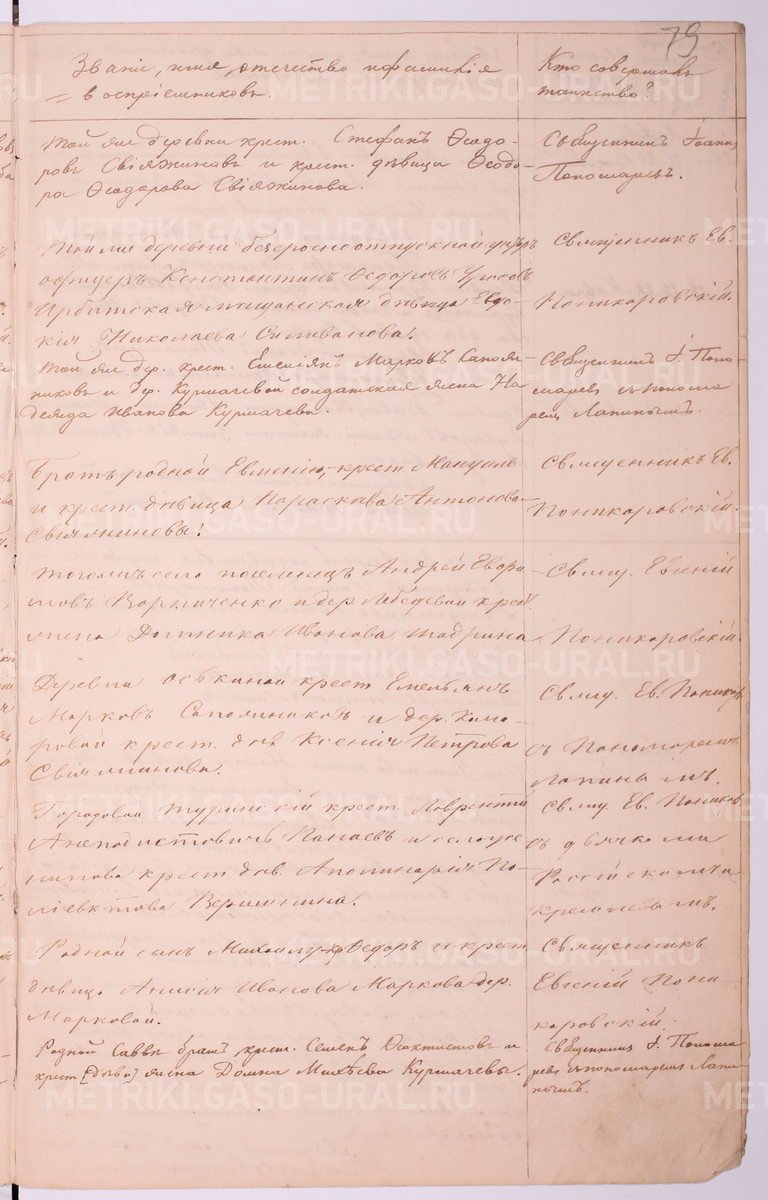 79
Званіе, имя, отечество и фамилія
воспріемниковъ.
Кто совершалъ
таинство?
Той же деревни крест. Стефанъ Ѳеодо-
ровъ Свіяжиновъ и крест. дѣвица Ѳеодо-
ра Ѳеодорова Свіяжинова.
Священникъ Іоаннъ
Пономаревъ.
Той же деревни безсрочноотпускной унтеръ
офицеръ Константинъ Ѳедоровъ
Ирбитская мещанская дѣвица Евдо-
кія Николаева Силивanова.
Священникъ Ев.
Поникаровскій.
Той же дер. крест. Емеліянъ Марковъ Сапож-
никовъ и дер. Курмачевой солдатская жена На
дежда Иванова Курмачева.
Священникъ І. Поно-
маревъ съ понома
ремъ Лапинымъ.
Братъ родной Евгенію, крест Мануилъ
и крест. дѣвица Параскева Антонова
Свіяжиновы.
Священникъ Ев.
Поникаровскій.
Тогоже села поселенецъ Андрей
и дер. Лебедевой крест
жена Домника Иванова Шадрина
Свящ. Евгеній
Поникаровскій.
Деревни Оськиной крест Емельянъ
Марковъ Сапожниковъ и дер. Кома-
ровой крест. дѣв Ксенія Петрова
Свіяжинова.
Свящ. Ев. Поникар.
съ Пономаремъ
Лапинымъ.
Городовой Туринскій крест Лаврентій
Анеподистовичъ Панаевъ и
крест. дѣв. Аполинарія По-
ліевктова Вершинина.
Свящ. Ев. Поников
съ дьячкомъ
Родной сынъ Михаилу Ѳедоръ и крест
дѣвица Анисія Иванова Маркова дер.
Марковой.
Священникъ
Евгеній Пони-
каровскій.
Родной Саввы братъ крест. Семенъ Ѳеоктистовъ и
крест [дѣви] жена Домна Михѣева Курмачевы.
Священникъ І. Понома
ревъ съ пономаремъ Лапи-
нымъ.
METRIKI.GASO-URAL.RU